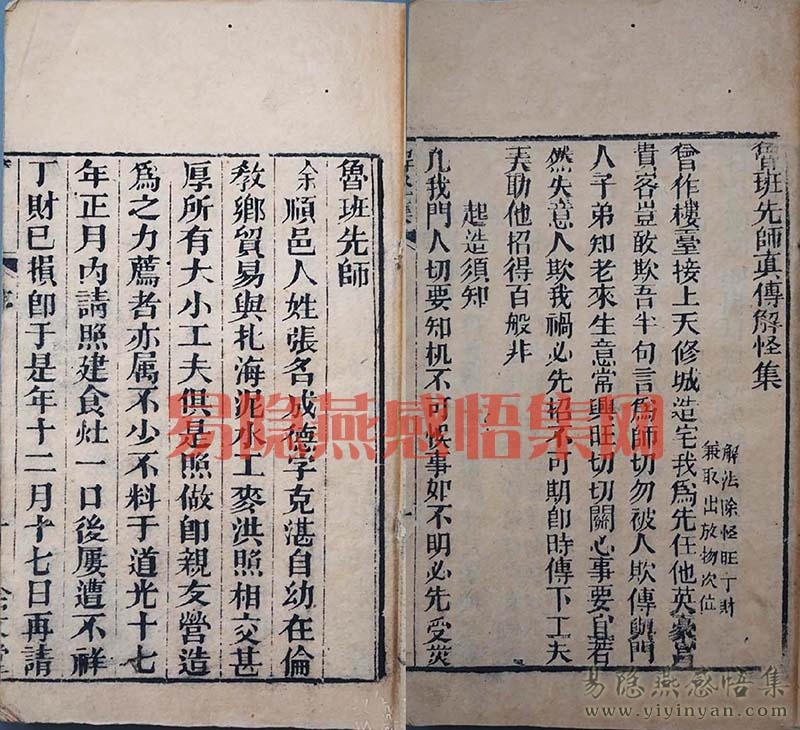 魯班先師真傳解怪集
解法除怪旺丁財
兼取出放物次位
曾作樓臺接上天修城造宅我為先任他英豪富
貴客豈敢欺吾半句言為師切勿被人欺傳與門
人子弟知老來生意常興旺切切關心事要宜若
然失意人欺我禍必先招不可期即時傳下工夫
天助他招得百般非
起造須知
凡我門人切要知机不可悞事如不明必先受災
魯班先師
余順邑人姓張名成德字克湛自幼在倫
教鄉貿易與扎海泥水工麥洪照相交甚
厚所有大小工夫俱是照做即親友營造
為之力薦者亦属不少不料于道光十七
年正月內請照建食灶一口後屢遭不祥
丁財已損即于是年十二月十七日再請
序
一
易隐燕感悟集网
易隐燕感悟集
www.yiyinyan.com